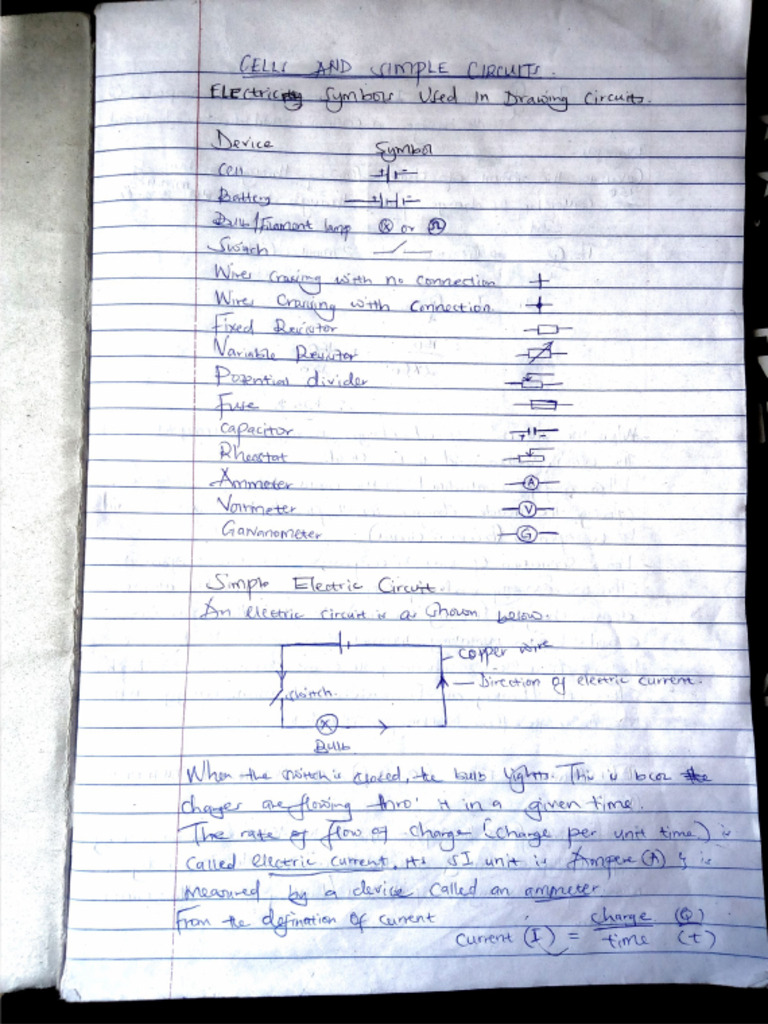 CELLS AND SIMPLE CIRCUITS.
Electricity Symbols Used In Drawing Circuits.
Device Symbol
Cell
Battery
Bulb/Filament lamp or
Switch
Wires crossing with no connection
Wires crossing with connection
Fixed Resistor
Variable Resistor
Potential divider
Fuse
Capacitor
Rheostat
Ammeter A
Voltmeter V
Galvanometer G
Simple Electric Circuit.
An electric circuit is as shown below.
copper wire
Direction of electric current.
switch.
Bulb
When the switch is closed, the bulb lights. This is bcoz the
charges are flowing thro' it in a given time.
The rate of flow of charge (charge per unit time) is
called electric current. Its SI unit is Ampere (A) & is
measured by a device called an ammeter
From the defination of current
Current (I) = charge (Q)
time (t)